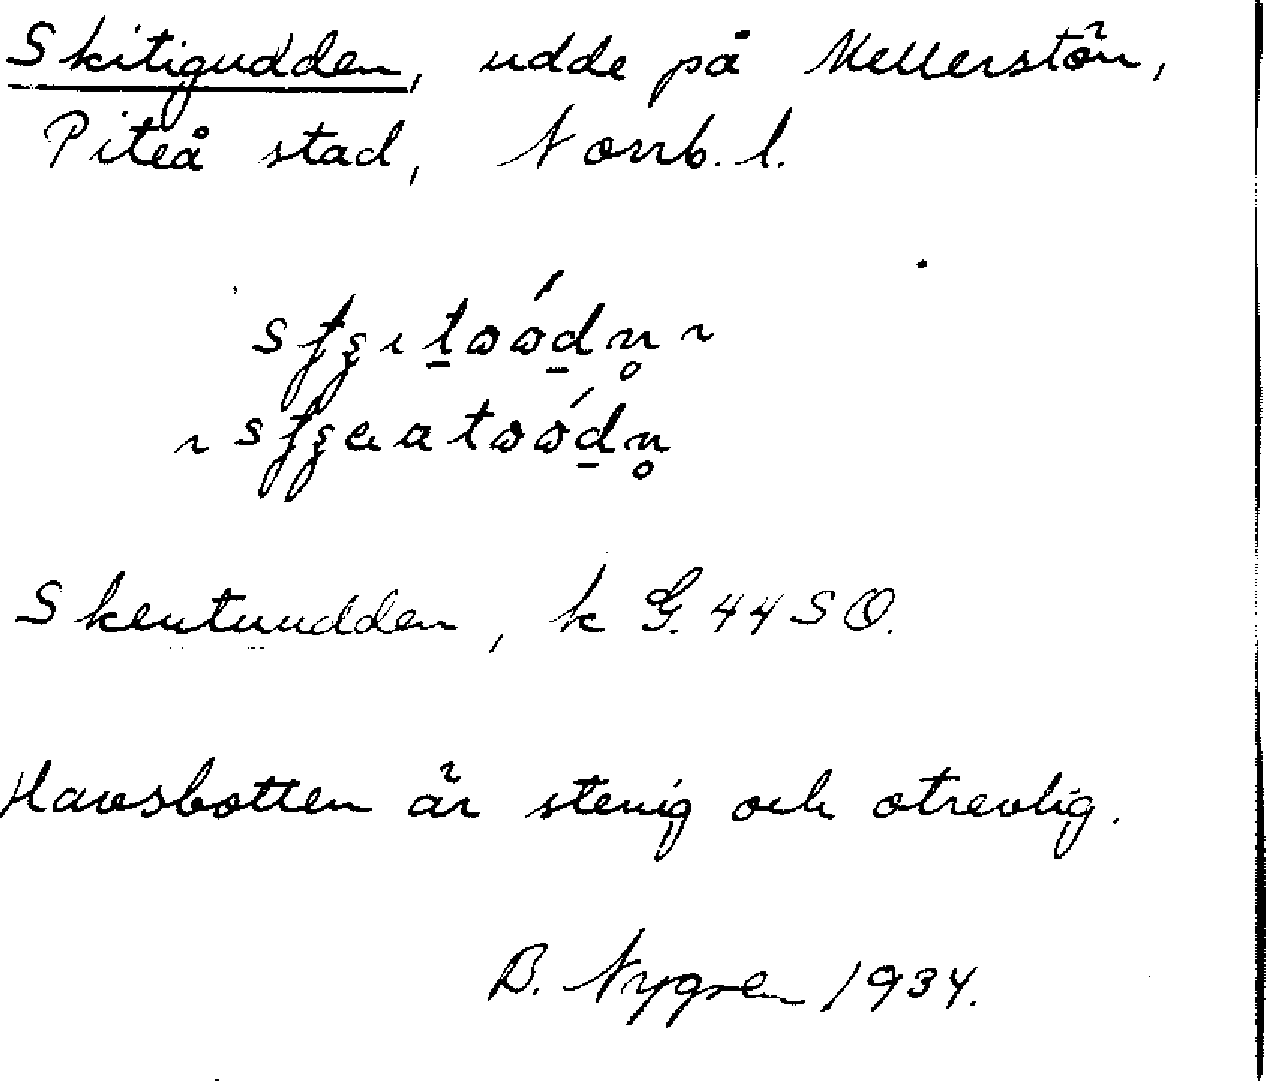 Skitigudden, udde på Mellerstön,
Piteå stad, Norrb. l.
Skeutuudden, k G. 44 SO.
Havsbotten är stenig och otrevlig.
B. Nygren 1934.